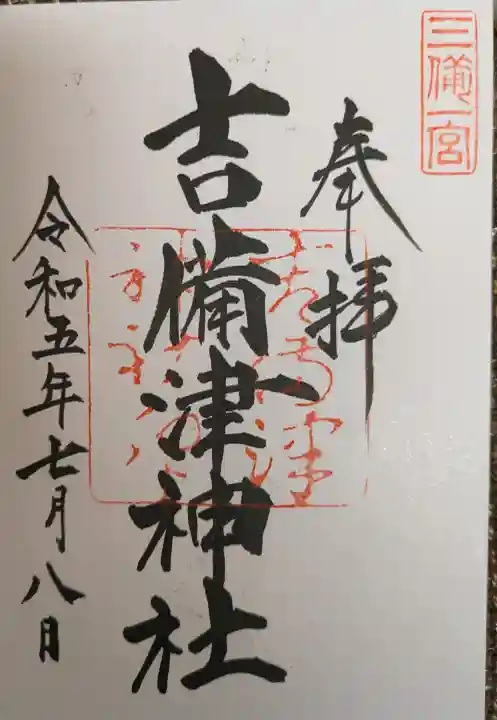 三備一宮
奉拝
吉備津神社
令和五年七月八日